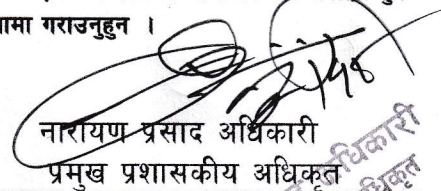 गराउनुहुन ।
नारायण प्रसाद अधिकारी
प्रमुख प्रशासकीय अधिकृत